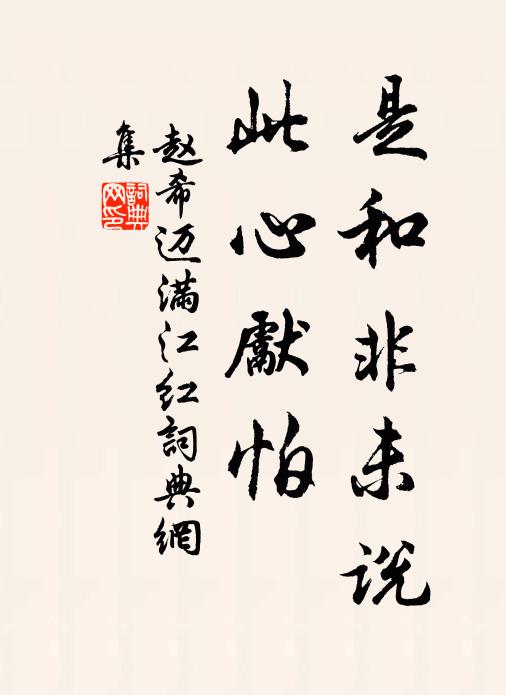 是和非未说
此心獻怕
赵希迈满江红詞典網
集
詞典
网印